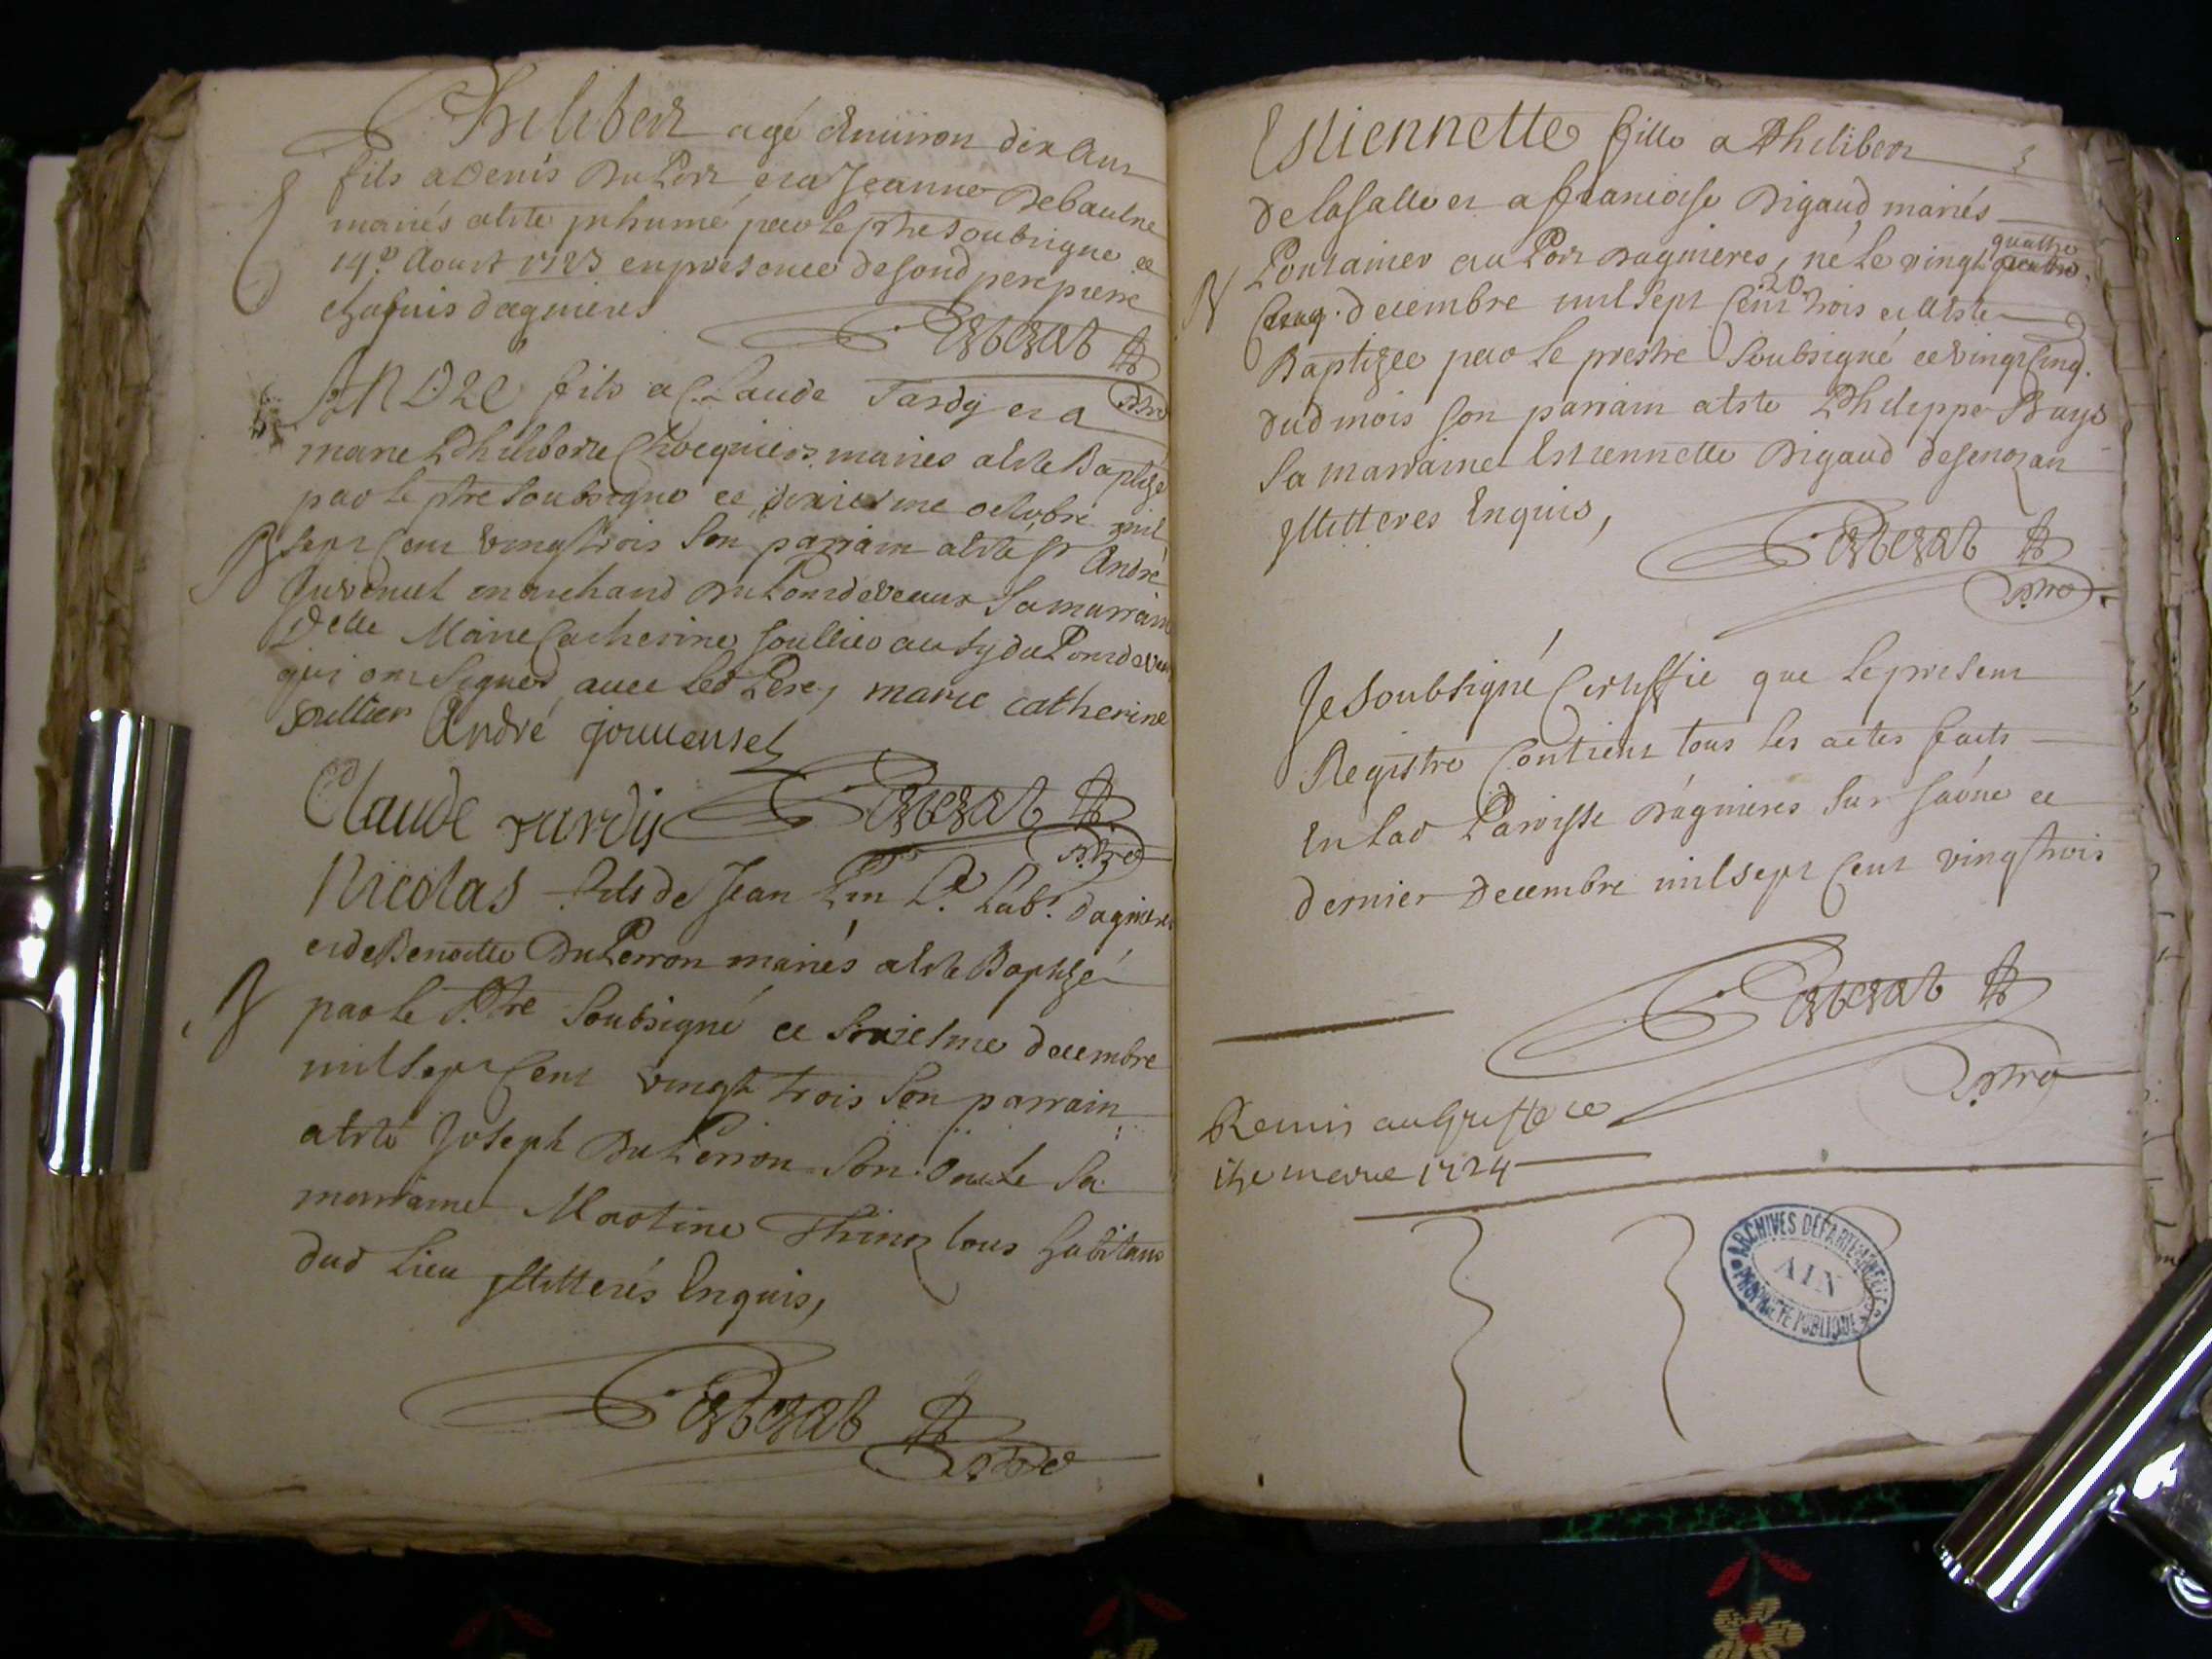 Philibert agé denviron dix ans
fils a Denis DuPort et a Jeanne Debaulne
mariés a été inhumé par le ptre soubsigné ce
14e Aoust 1723 en presence de sond pere pierre
chapuis dagnieres
ptre
ANDRE fils a Claude Tardy et a
marie Philiberte mariés a este Baptizé
par le ptre soubsigné ce octobre mil
sept Cent vingtrois son parrain a este Sr André
Juvenet marchand du Pontdevaux Sa marraine
Delle Marie Catherine Soullier aussy du Pontdevau
qui ont signés avec led Pere, marie catherine
soullier André jouvensel
Claude tardy
ptre
Nicolas fils de Jean Lab. dagnieres
et de Benoitte DuPerron mariés a este Baptizé
par le Ptre Soubsigné ce decembre
mil sept Cent vingt trois Son parrain
a esté Joseph DuPerron Son oncle Sa
marraine Martine tous habitans
dud Lieu illitterés Enquis,
ptre
Estiennette fille a Philibert
De laSalle et a francoise Rigaud mariés
Pontaniev au Port dagnieres, né le vingt quatre
decembre mil sept Cent 20 trois et a este
Baptizee par le prestre Soubsigné ce vingt Cinq.
dud mois son parrain a este Philippe Buys
Sa marraine Estiennette Rigaud de senozan
illitteres Enquis,
ptre
Je Soubsigné Certiffie que le present
Registre Contient tous les actes faits
en lad Paroisse d'agnieres sur saône ce
dernier decembre mil sept Cent vingtrois
ptre
Remis au Greffe ce
1724
ARCHIVES DÉPARTEMENTALES
AIN
PROPRIÉTÉ PUBLIQUE